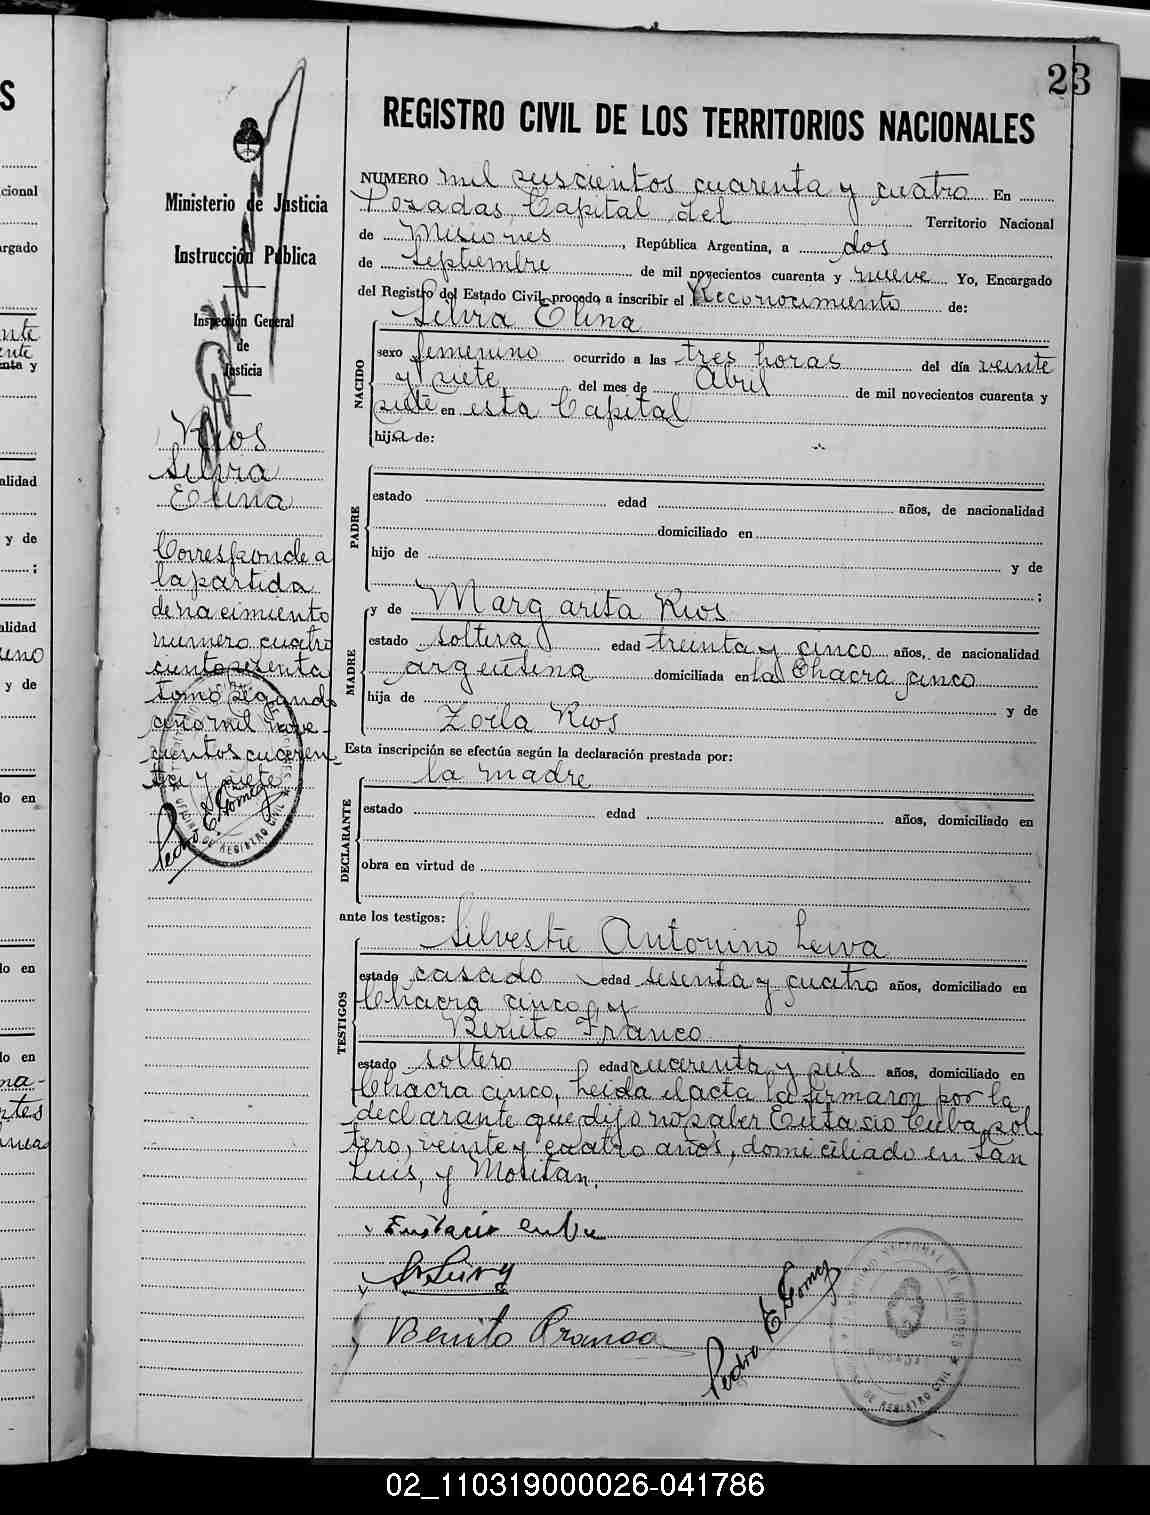 23
REGISTRO CIVIL DE LOS TERRITORIOS NACIONALES
Ministerio de Justicia
Instrucción Pública
Inspección General
de
Justicia
Rios
Silvia
Elina
Corresponde a
la partida
de nacimiento
numero cuatro
cientos sesenta
tomo segundo
año mil nove-
cientos cuaren-
ta y siete
Pedro E. Gomez
NUMERO mil seiscientos cuarenta y cuatro En
Posadas, Capital del Territorio Nacional
de Misiones, República Argentina, a dos
de Septiembre de mil novecientos cuarenta y nueve Yo, Encargado
del Registro del Estado Civil, procedo a inscribir el Reconocimiento de:
NACIDO
Silvia Elina
sexo femenino ocurrido a las tres horas del día veinte
y siete, del mes de Abril de mil novecientos cuarenta y
siete en esta Capital
hija de:
PADRE
estado edad años, de nacionalidad
domiciliado en
hijo de y de
;
MADRE
y de Margarita Rios
estado soltera edad treinta y cinco años, de nacionalidad
argentina domiciliada en la Chacra cinco
hija de y de
Zoila Rios
Esta inscripción se efectúa según la declaración prestada por:
DECLARANTE
la madre
estado edad años, domiciliado en
obra en virtud de
ante los testigos:
TESTIGOS
Silvestre Antonino Leiva
estado casado edad sesenta y cuatro años, domiciliado en
Chacra cinco, y
Benito Franco
estado soltero edad cuarenta y seis años, domiciliado en
Chacra cinco, Leida el acta la firmaron por la
declarante que dijo no saber Eustacio Cuba, sol
tero, veinte y cuatro años, domiciliado en San
Luis, y
Eustacio Cuba
Benito Franco
Pedro E. Gomez
POSADAS
OFICINA DE REGISTRO CIVIL
02_110319000026-041786